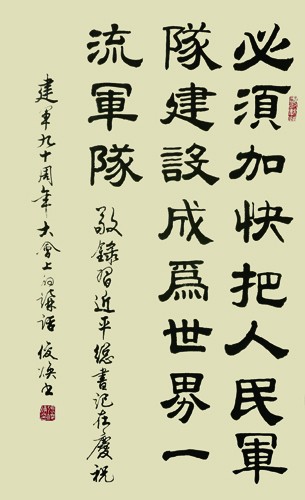 必須加快把人民軍
隊建設成爲世界一
流軍隊 敬錄習近平總書記在慶祝
建軍九十周年大會上的講話 俊煥書